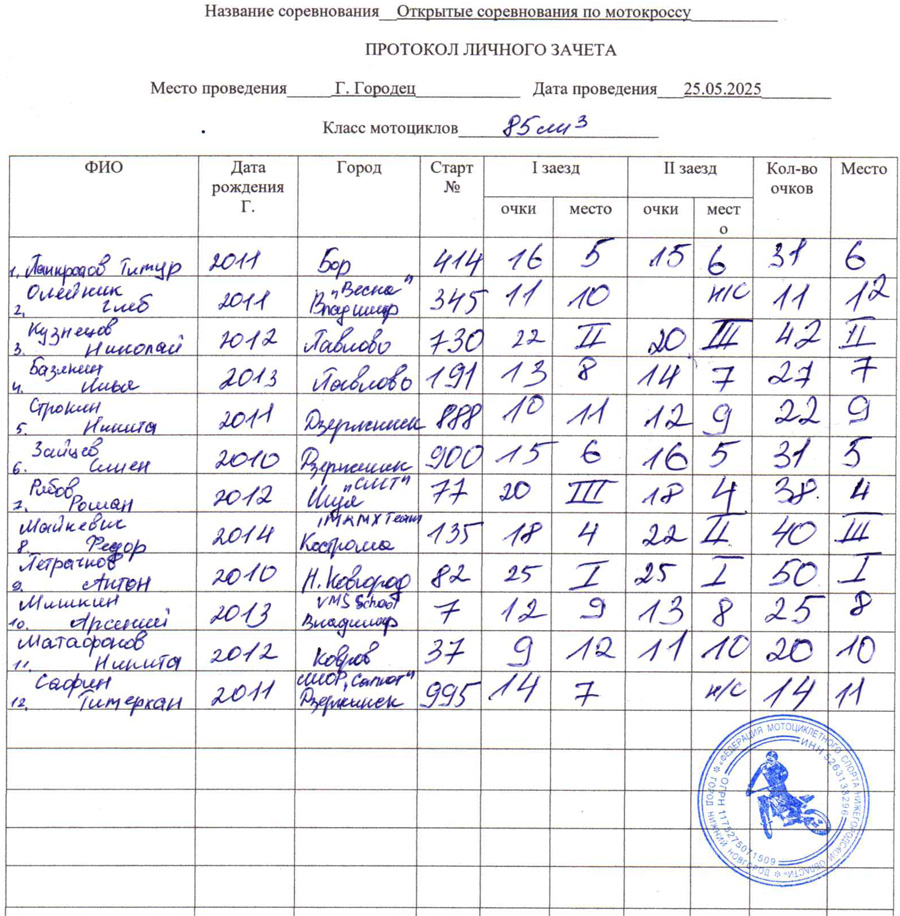 Название соревнования Открытые соревнования по мотокроссу
ПРОТОКОЛ ЛИЧНОГО ЗАЧЕТА
Место проведения Г. Городец Дата проведения 25.05.2025
Класс мотоциклов 85 см³
ФИО Дата рождения Г. Город Старт № I заезд II заезд Кол-во очков Место
очки место очки место
1. Панкратов Тимур 2011 Бор 414 16 5 15 6 31 6
2. Олейник Глеб 2011 "Весна" Владимир 345 11 10 н/с 11 12
3. Кузнецов Николай 2012 Павлово 730 22 II 20 III 42 II
4. Базянин Илья 2013 Павлово 191 13 8 14 7 27 7
5. Строкин Никита 2011 Дзержинск 888 10 11 12 9 22 9
6. Зайцев 2010 Дзержинск 900 15 6 16 5 31 5
7. Рябов Роман 2012 Шуя 77 20 III 18 4 38 4
8. Майкевис Федор 2014 MXMX Team Кострома 135 18 4 22 II 40 III
9. Петрачков Антон 2010 Н.Новгород 82 25 I 25 I 50 I
10. Мишкин Арсений 2013 VMS School Владимир 7 12 9 13 8 25 8
11. Матафонов Никита 2012 Ковров 37 9 12 11 10 20 10
12. Сафин Тимерхан 2011 Дзержинск 995 14 7 н/с 14 11
ФЕДЕРАЦИЯ МОТОЦИКЛЕТНОГО СПОРТА НИЖЕГОРОДСКОЙ ОБЛАСТИ
ГОРОД НИЖНИЙ НОВГОРОД
ИНН 5263133296
ОГРН 1175275071509